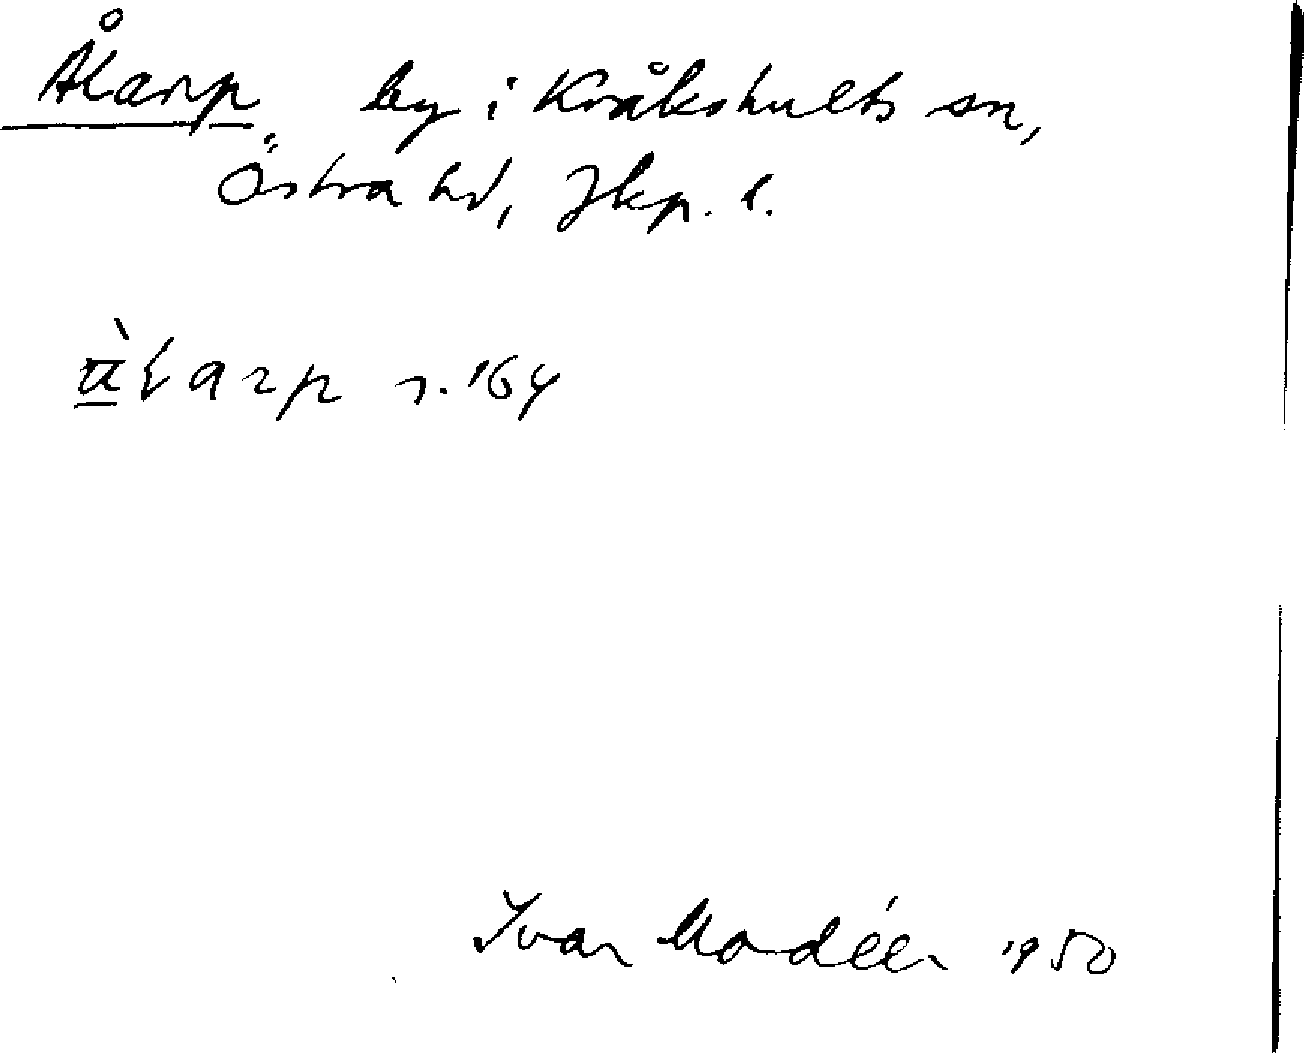 Ålarp, by i Kråkshults sn,
Östra hd, Jkp. l.
larp s. 164
Ivar Modéer 1950